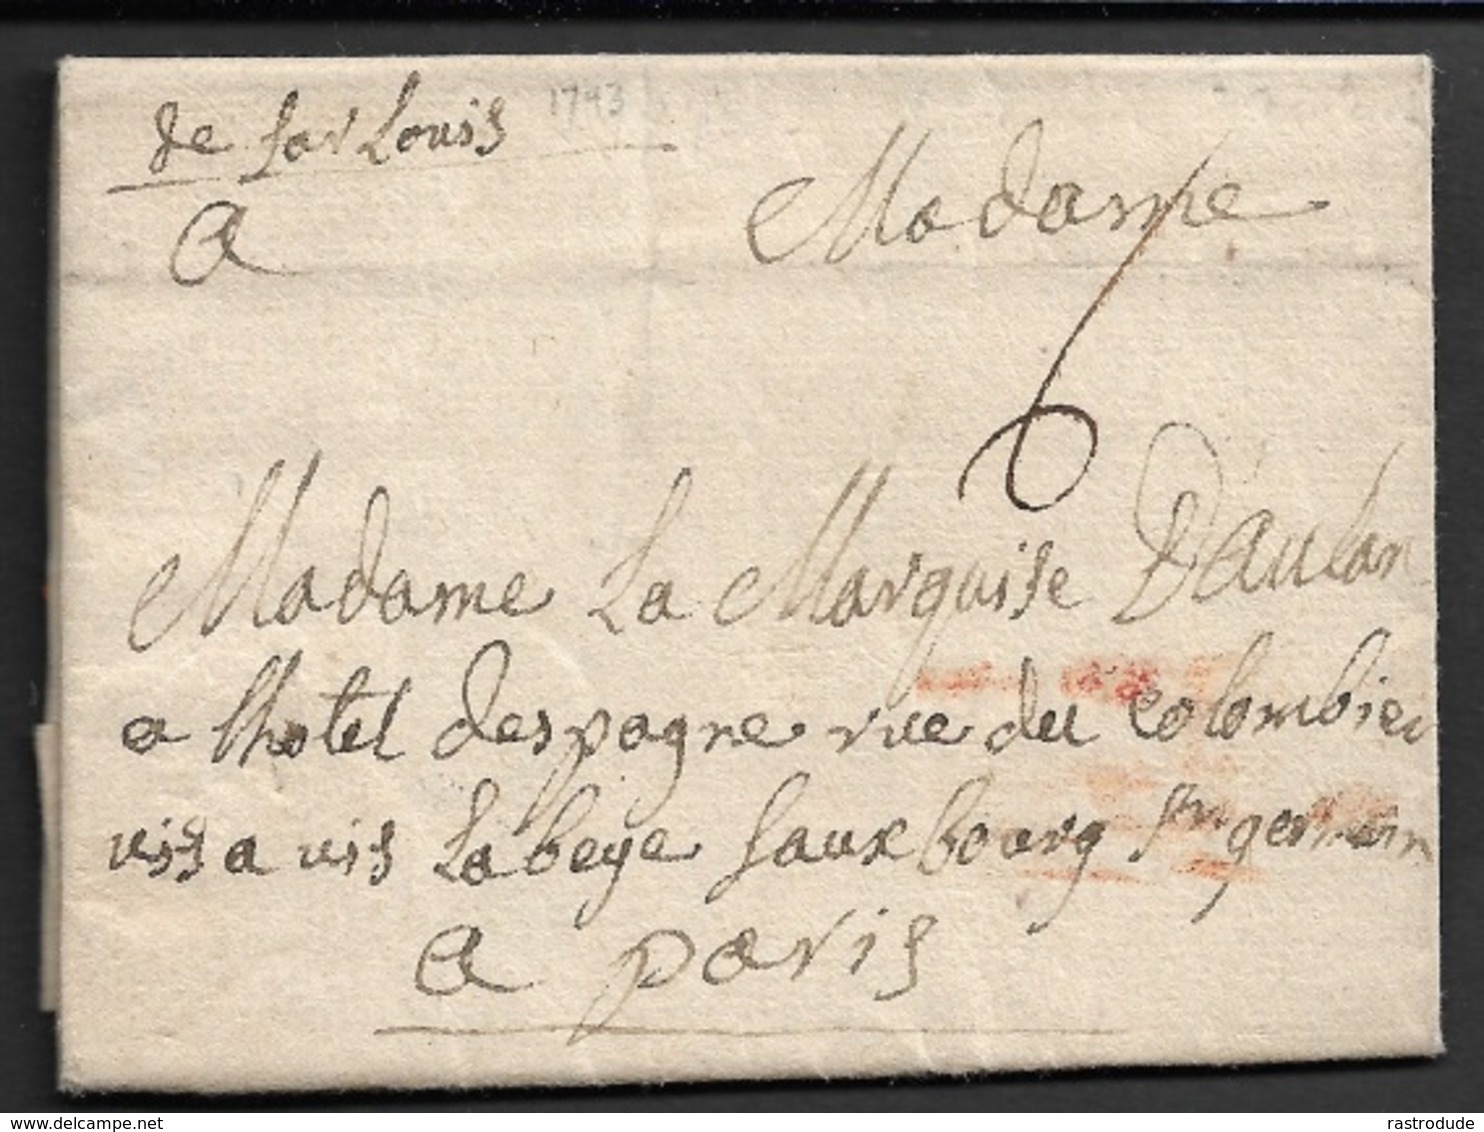 de forlouis 1743
A Madame
6
Madame La Marquise D'aulan
a lhotel despagne rue du colombier
viss a vis Labeye fauxbourg st germain
A paris
delcampe.net
rastrodude